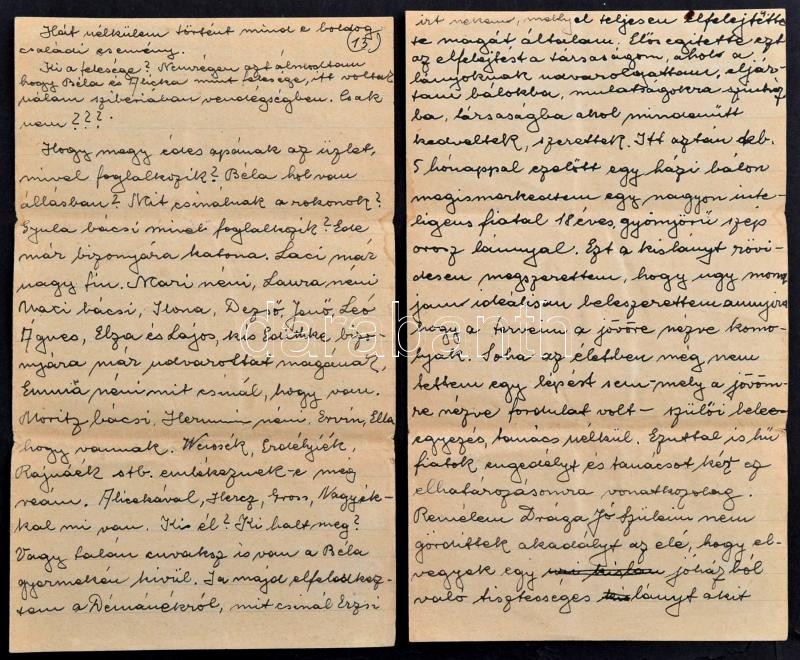 Hát nélkülem történt mind e boldog
családi esemény. (13)
Ki a felesége? Nemrégen azt álmodtam
hogy Béla és Alicka mint felesége, itt voltak
nálam szibériában vendégségben. Csak
nem???
Hogy megy édes apának az üzlet,
mivel foglalkozik? Béla hol van
állásban? Mit csinálnak a rokonok?
Gyula bácsi mivel foglalkozik? Ede
már bizonyára katona. Laci már
nagy fiu. Mari néni, Laura néni
Naci bácsi, Ilona, Dezső, Jenő, Leó
Ágnes, Elza és Lajos, kis Edithke bizo-
nyára már udvaroltat magának,
Emma néni mit csinál, hogy van.
Móritz bácsi, Hermin néni, Ervin, Ella
hogy vannak. Weissék, Erdélyiék,
Rajnáék stb. emlékeznek-e még
reám. Alicékával, Hercz, Gross, Nagyék-
kal mi van. Ki él? Ki halt meg?
Vagy talán unokájuk is van a Béla
gyermekén kivül. Ja majd elfeledkez-
tem a Démánékról, mit csinál Erzsi
irt nekem, mellyel teljesen elfelejtette
te magát általam. Elősegitette ezt
az elfelejtést a társaságom, ahol a
lányoknak udvarolgattam, eljár-
tam bálokba, mulatságokra szinház
ba, társaságba ahol mindenütt
kedveltek, szerettek. Itt aztán kb.
5 hónappal ezelőtt egy házi bálon
megismerkedtem egy nagyon inte-
ligens fiatal 18 éves, gyönyörű szép
orosz lánnyal. Ezt a kislányt rövi-
desen megszerettem, hogy ugy mond
jam ideálisan beleszerettem annyira
hogy a terveim a jövőre nézve komo-
lyak. Soha az életben még nem
tettem egy lépést sem - mely a jövőm-
re nézve fordulat volt - szülői bele-
egyezés, tanács nélkül. Ezuttal is hű
fiatok engedélyt és tanácsot kér ez
elhatározásomra vonatkozólag.
Remélem Drága Jó Szüleim nem
gördittek akadályt az elé, hogy el-
vegyek egy jóházból
való tisztességes lányt akit
darabanth